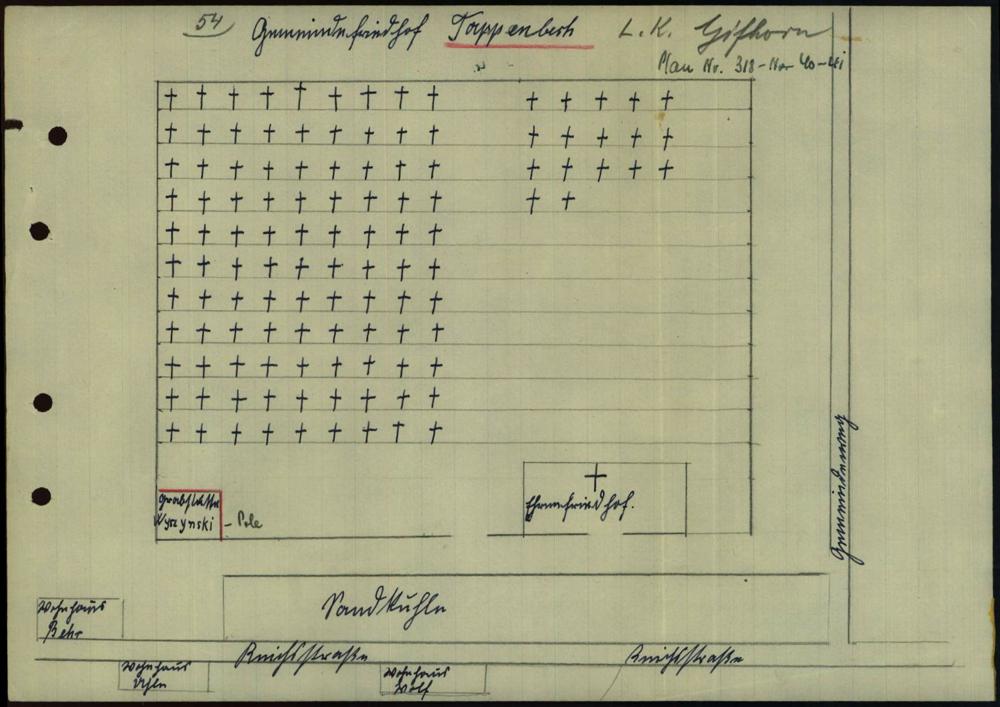 54 Gemeindefriedhof Tappenbeck L. K. Gifhorn
Plan Nr. 318 - Nr 40-41
Grabstätte
Wyszynski - Pole
Ehrenfriedhof.
Gemeindeweg
Sandkuhle
Wohnhaus
Behr
Reichsstraße
Reichsstraße
Wohnhaus
Wohnhaus
Wolf